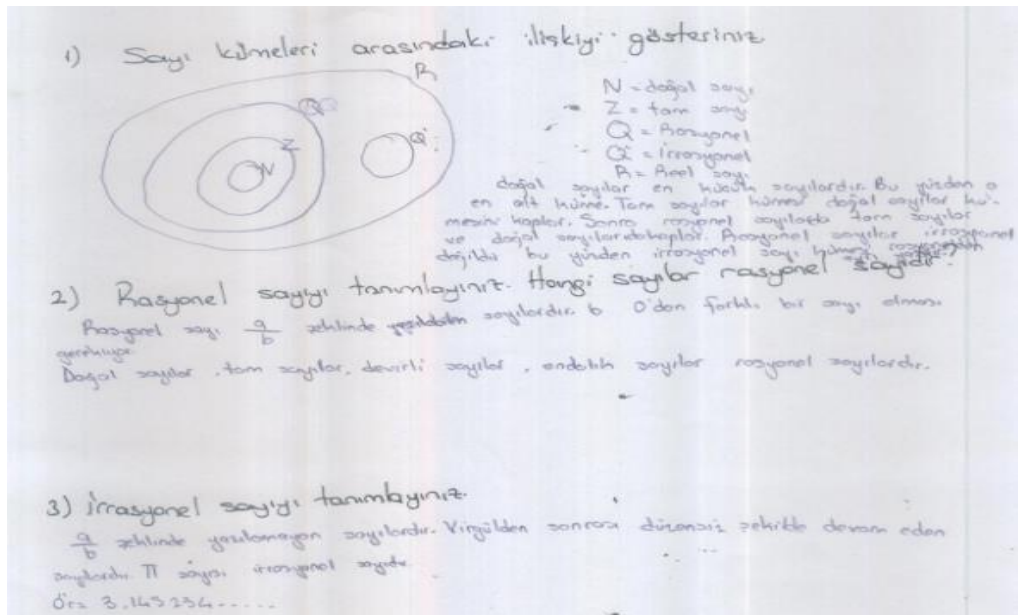 1) Sayı kümeleri arasındaki ilişkiyi gösteriniz
R
Q
Z
N
Q'
N = doğal sayı
Z = tam sayı
Q = Rasyonel
Q' = İrrasyonel
R = Reel sayı
doğal sayılar en küçük sayılardır. Bu yüzden o
en alt küme. Tam sayılar kümesi doğal sayılar kü-
mesini kaplar. Sonra rasyonel sayılarda tam sayılar
ve doğal sayıları da kaplar. Rasyonel sayılar irrasyonel
değildir bu yüzden irrasyonel sayı kümesi
2) Rasyonel sayıyı tanımlayınız. Hangi sayılar rasyonel sayıdır?
Rasyonel sayı a/b şeklinde sayılardır. b 0'dan farklı bir sayı olması
gerekiyor.
Doğal sayılar, tam sayılar, devirli sayılar, ondalık sayılar rasyonel sayılardır.
3) İrrasyonel sayıyı tanımlayınız.
a/b şeklinde yazılamayan sayılardır. Virgülden sonrası düzensiz şekilde devam eden
sayılardır. π sayısı irrasyonel sayıdır
Ör= 3.145234.....